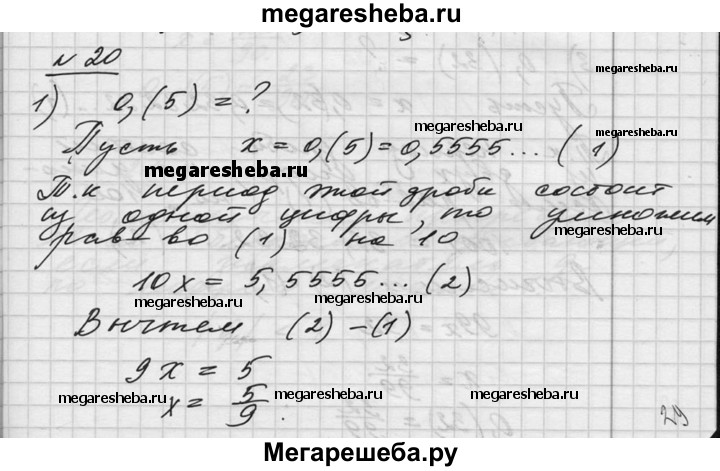 megaresheba.ru
№ 20
megaresheba.ru
1) 0,(5) = ?
megaresheba.ru
Пусть x = 0,(5) = 0,5555... (1)
megaresheba.ru
megaresheba.ru
Т.к период этой дроби состоит
из одной цифры, то умножим
megaresheba.ru
рав-во (1) на 10
10x = 5,5555... (2)
megaresheba.ru
megaresheba.ru
Вычтем (2) - (1)
9x = 5
megaresheba.ru
megaresheba.ru
megaresheba.ru
x = 5/9.
29
Мегарешеба.ру